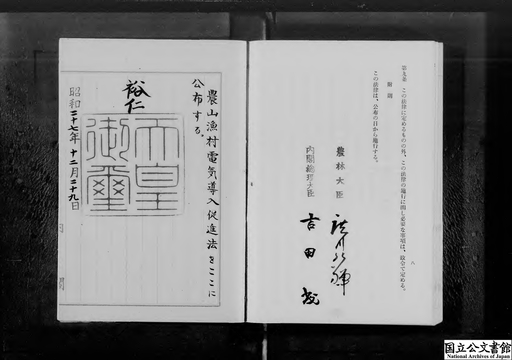 第九条 この法律に定めるものの外、この法律の施行に関し必要な事項は、政令で定める。
附則
この法律は、公布の日から施行する。
八
農林大臣
内閣総理大臣 吉田茂
農山漁村電気導入促進法をここに
公布する。
裕仁
天皇
御璽
昭和二十七年十二月二十九日
国立公文書館
National Archives of Japan